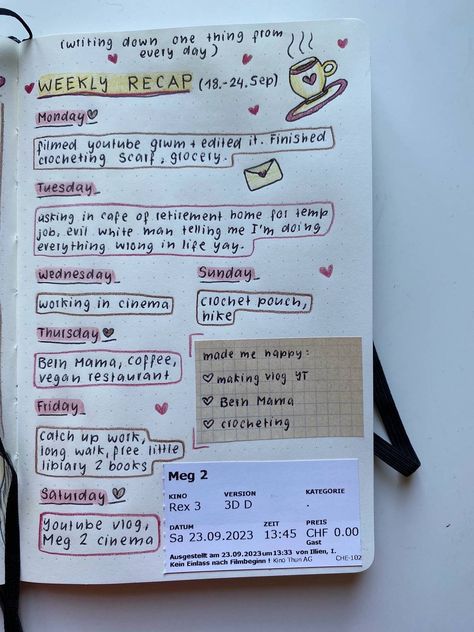 (writing down one thing from
every day)
WEEKLY RECAP (18.-24.Sep)
Monday
filmed youtube grwm + edited it. Finished
crocheting scarf, grocery.
Tuesday
asking in cafe of retirement home for temp
job, evil white man telling me I'm doing
everything wrong in life yay.
Wednesday
working in cinema
Sunday
crochet pouch,
hike
Thursday
Bern Mama, coffee,
vegan restaurant
Friday
catch up work,
long walk, free little
library 2 books
Saturday
Youtube vlog,
Meg 2 cinema
made me happy:
making vlog YT
Bern Mama
crocheting
Meg 2
KINO VERSION KATEGORIE
Rex 3 3D D .
DATUM ZEIT PREIS
Sa 23.09.2023 13:45 CHF 0.00
Gast
Ausgestellt am 23.09.2023 um 13:33 von Illien, I.
Kein Einlass nach Filmbeginn ! Kino Thun AG CHE-102